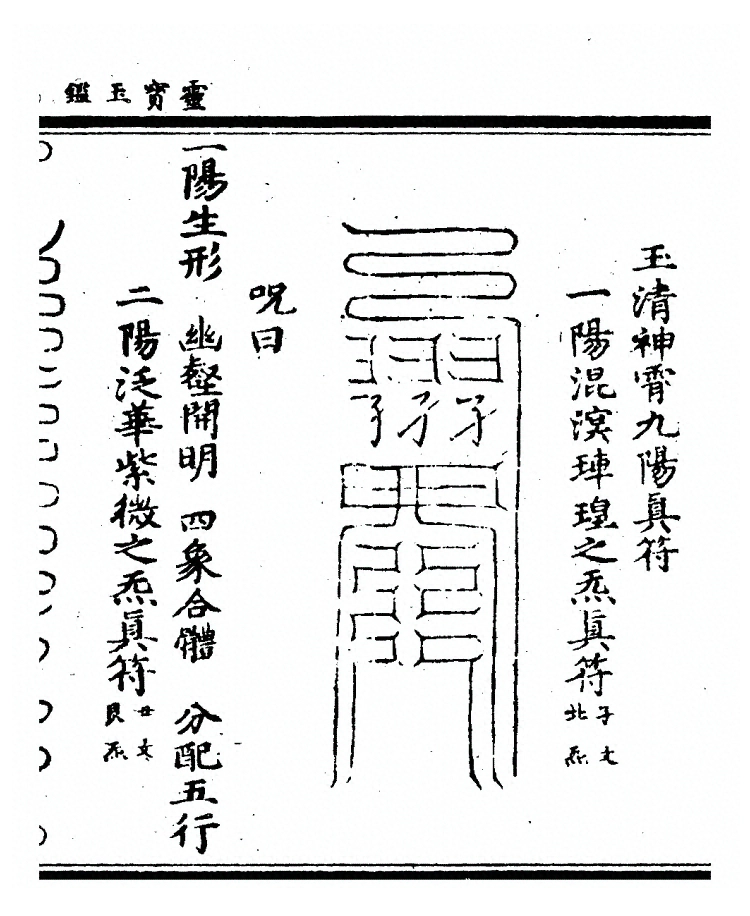 靈寶玉鑑
玉清神霄九陽真符
一陽混溟瑋瑝之炁真符 子文 北炁
呪曰
一陽生形 幽壑開明 四象合體 分配五行
二陽泛華紫微之炁真符 丑文 艮炁